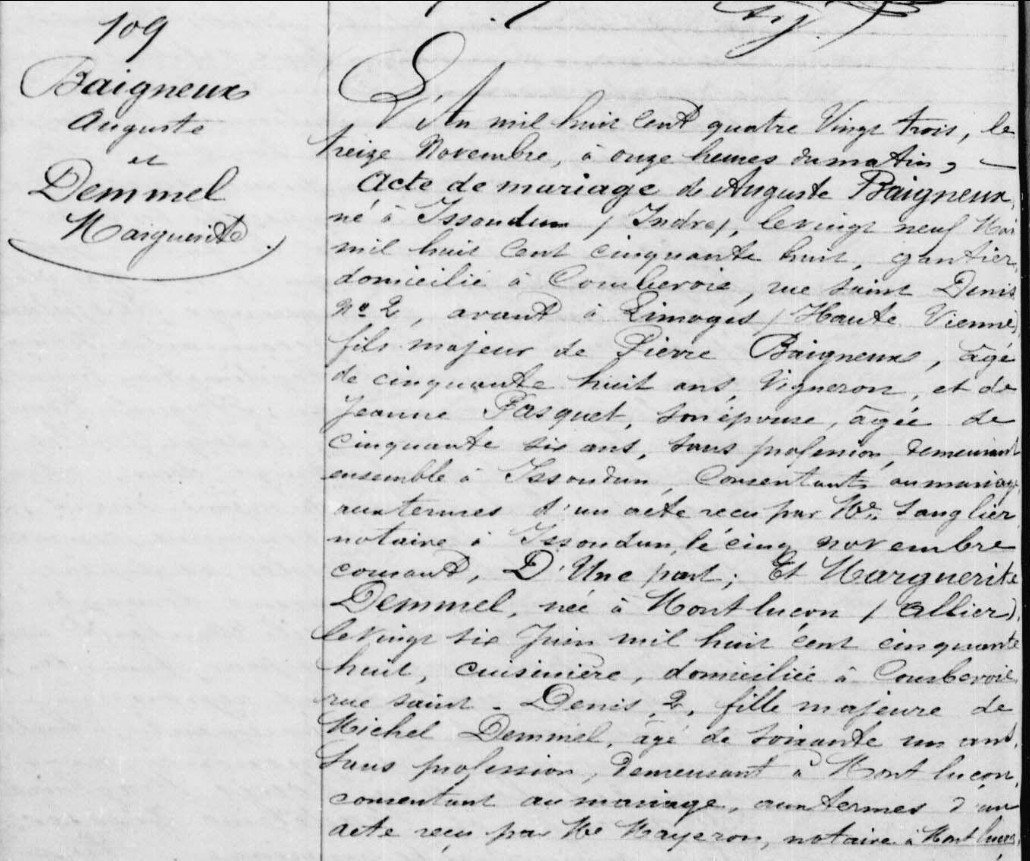 109
Baigneux
Auguste
et
Demmel
Marguerite
L'An mil huit cent quatre Vingt trois, le
treize Novembre, à onze heures du matin,
Acte de mariage de Auguste Baigneux,
né à Issoudun (Indre), le vingt neuf Mai
mil huit cent cinquante huit, gantier,
domicilié à Courbevoie, rue Saint Denis
No 2, avant à Limoges (Haute Vienne)
fils majeur de Pierre Baigneux, âgé
de cinquante huit ans, Vigneron, et de
Jeanne Pasquet, son épouse, âgée de
cinquante six ans, sans profession, demeurant
ensemble à Issoudun, Consentants au mariage
aux termes d'un acte reçu par Me Sanglier
notaire à Issoudun, le cinq novembre
courant, D'Une part; Et Marguerite
Demmel, née à Montluçon (Allier),
le vingt six Juin mil huit cent cinquante
huit, cuisinière, domiciliée à Courbevoie
rue saint-Denis, 2, fille majeure de
Michel Demmel, âgé de soixante un ans,
sans profession, demeurant à Montluçon,
consentant au mariage, aux termes d'un
acte reçu par Me Mayeron, notaire à Montluçon,